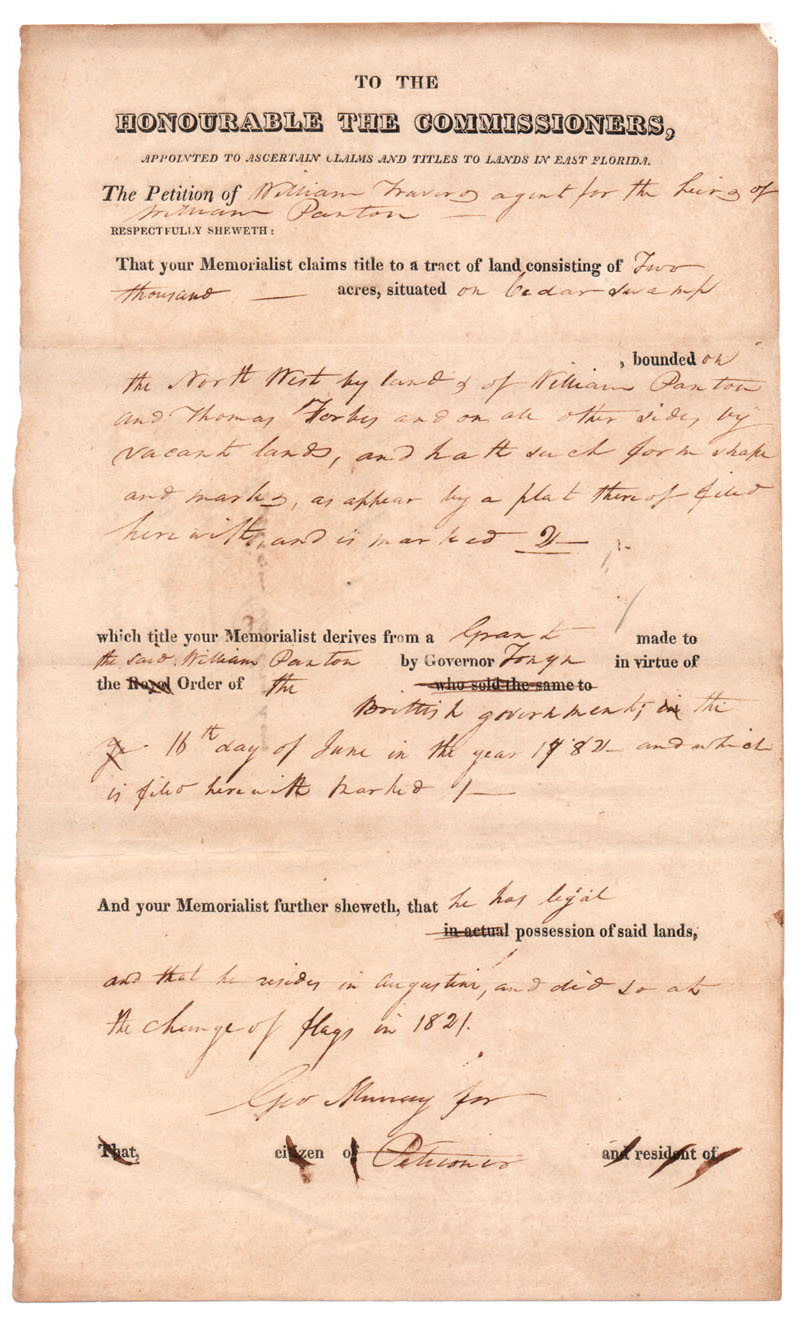 TO THE
HONOURABLE THE COMMISSIONERS,
APPOINTED TO ASCERTAIN CLAIMS AND TITLES TO LANDS IN EAST FLORIDA.
The Petition of William Travers agent for the heirs of
William Panton —
RESPECTFULLY SHEWETH:
That your Memorialist claims title to a tract of land consisting of Two
thousand — acres, situated on Cedar Swamp
, bounded on
the North West by lands of William Panton
and Thomas Forbes and on all other sides by
vacant lands, and hath such form shape
and marks, as appear by a plat thereof filed
herewith, and is marked 2—
which title your Memorialist derives from a Grant made to
the said William Panton by Governor Tonyn in virtue of
the Royal Order of the who sold the same to
Brittish government, the
16th day of June in the year 1782 and which
is filed herewith marked 1—
And your Memorialist further sheweth, that he has legal
in actual possession of said lands,
and that he resides in Augustine, and did so at
the change of flags in 1821.
Geo Murray for
That, citizen of Petitioner and resident of